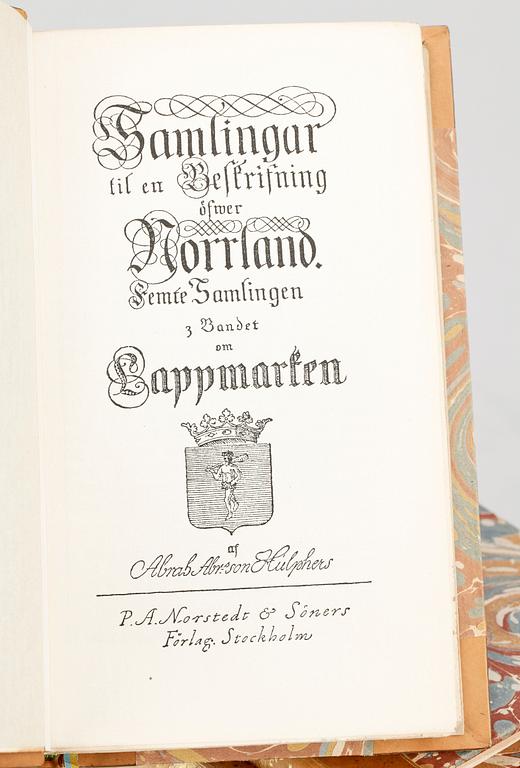 Samlingar
til en Beskrifning
öfwer
Norrland.
Femte Samlingen
3 Bandet
om
Lappmarken
af
Abrah Abr:son Hülphers
P. A. Norstedt & Söners
Förlag. Stockholm